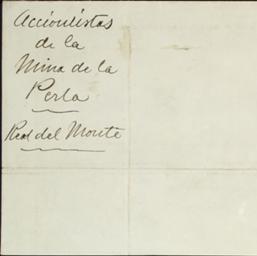 Accionistas
de la
Mina de la
Perla
Real del Monte